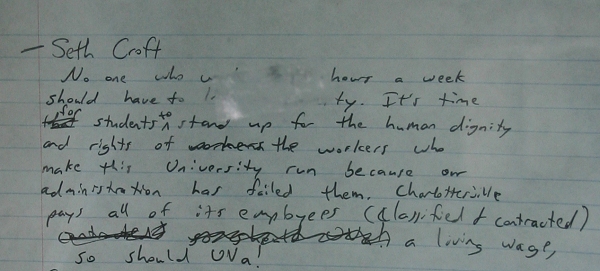 - Seth Croft
No one who hours a week
should have to ty. It's time
for students to stand up for the human dignity
and rights of the workers who
make this University run because our
administration has failed them. Charlottesville
pays all of its employees (classified & contracted)
a living wage,
so should UVa!